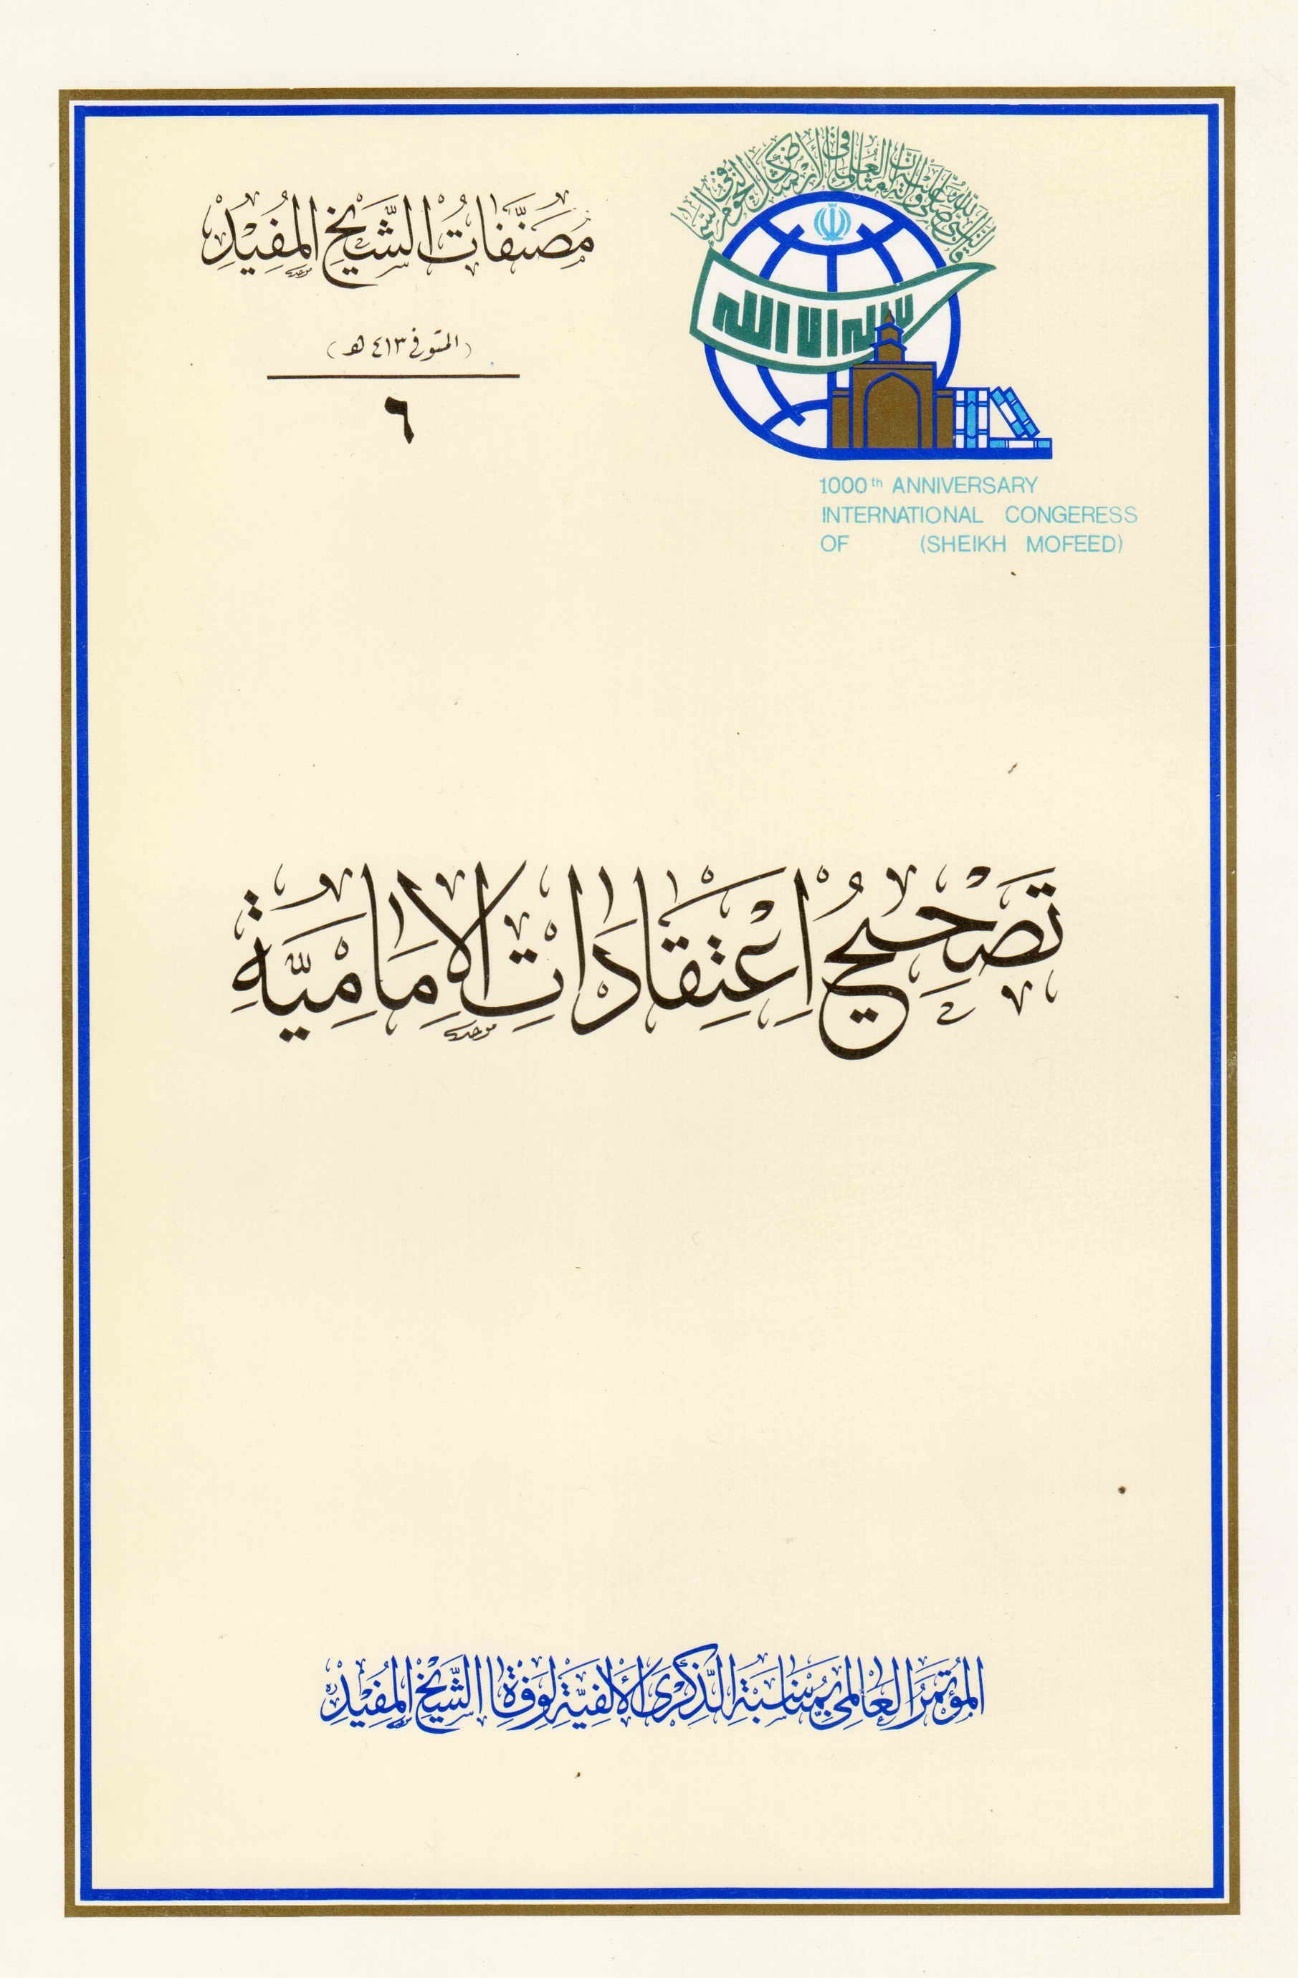 مُصَنَّفَاتُ الشَّيْخِ المُفِيْدِ
(المتوفى ٤١٣ هـ)
٦
لا إله إلا الله
1000th ANNIVERSARY
INTERNATIONAL CONGERESS
OF (SHEIKH MOFEED)
تَصْحِيحُ اعْتِقَادَاتِ الإِمَامِيَّةِ
المُؤتَمَرُ العَالَمِيُّ بِمُنَاسَبَةِ الذِّكْرَى الأَلْفِيَّةِ لِوَفَاةِ الشَّيْخِ المُفِيْدِ